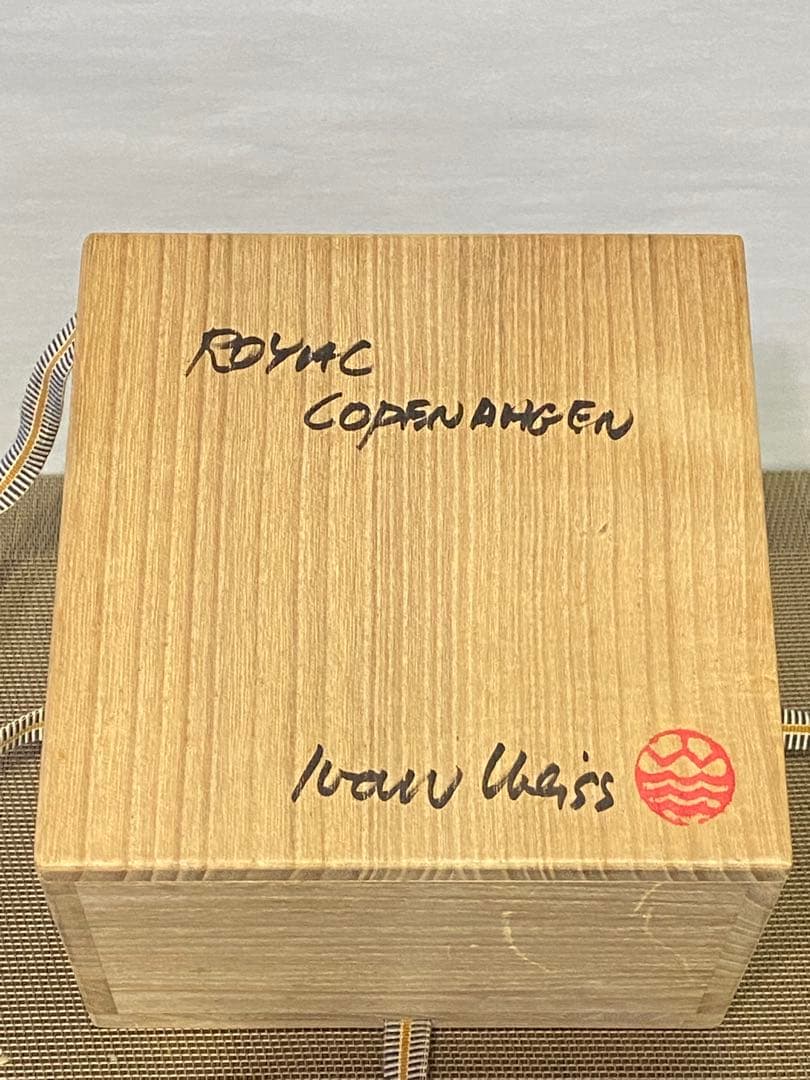 ROYAL
COPENAHGEN
Ivan Weiss